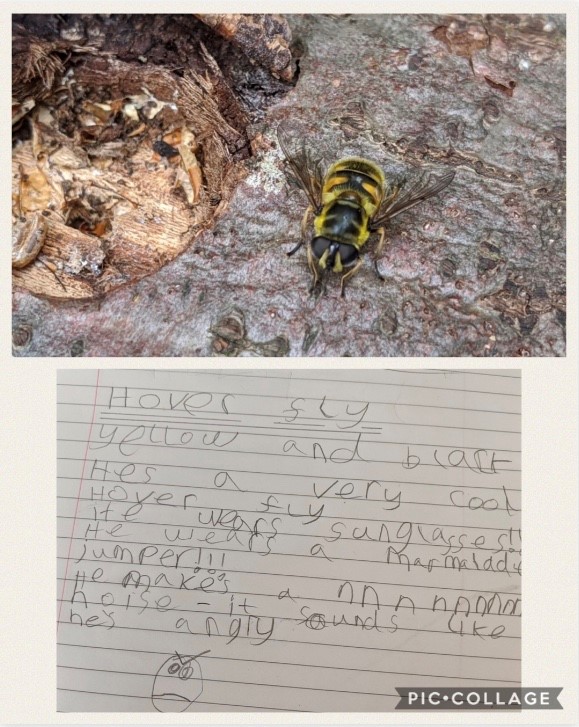 Hover fly
yellow and black
Hes a very cool
Hover fly
He wears sunglasses!!
He wears a marmalade
jumper!!!
He makes a nnnnnnnn
noise - it sounds like
hes angry
PIC•COLLAGE